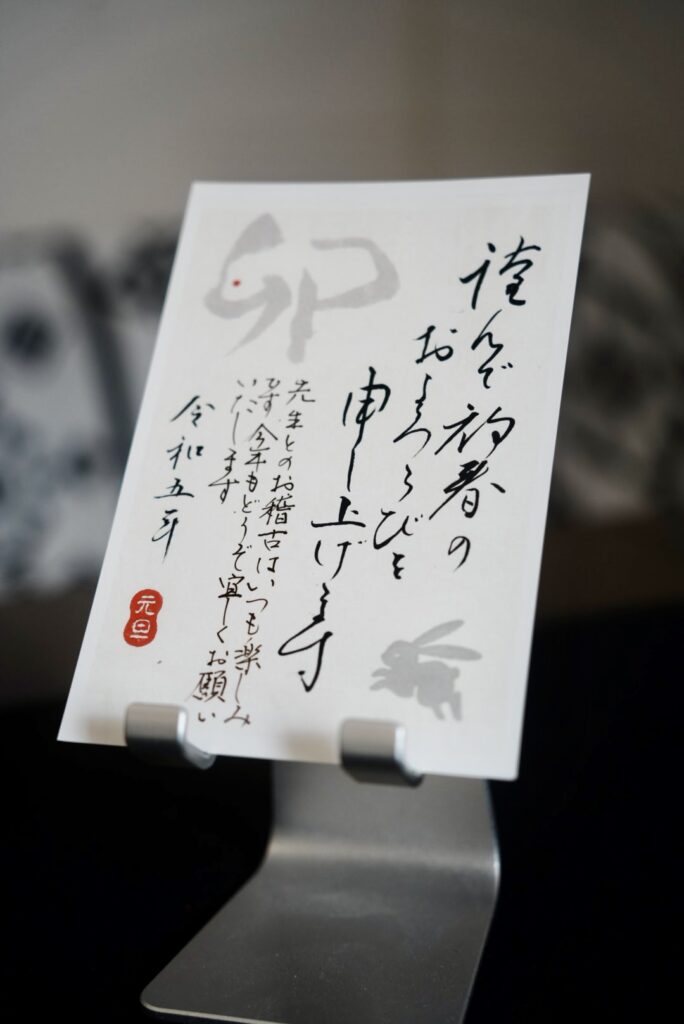 謹んで初春の
およろこびを
申し上げます
卯
先生とのお稽古はいつも楽しみ
です 今年もどうぞ宜しくお願い
いたします
令和五年
元旦